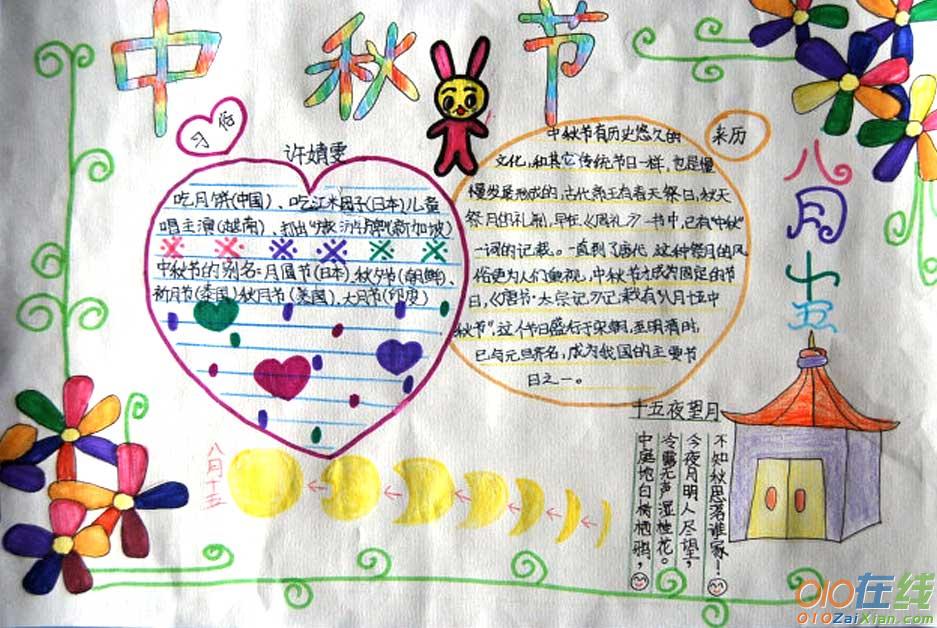 中秋节
习俗
许婧雯
吃月饼(中国)、吃江米团子(日本)儿童
唱主演(越南)、打出"旅游牌"(新加坡)
中秋节的别名:月圆节(日本)秋夕节(朝鲜)、
祈月节(泰国)秋月节(美国)、大月节(印度)
来历
中秋节有历史悠久的
文化,和其它传统节日一样,也是慢
慢发展形成的,古代帝王有春天祭日,秋天
祭月的礼制,早在《周礼》一书中,已有"中秋"
一词的记载。一直到了唐代,这种祭月的风
俗更为人们重视,中秋节才成为固定的节
日,《唐书·太宗记》记载有"八月十五中
秋节",这个节日盛行于宋朝,至明清时,
已与元旦齐名,成为我国的主要节
日之一。
八月十五
十五夜望月
中庭地白树栖鸦,
冷露无声湿桂花。
今夜月明人尽望,
不知秋思落谁家!
八月十五
010在线
010ZaiXian.com